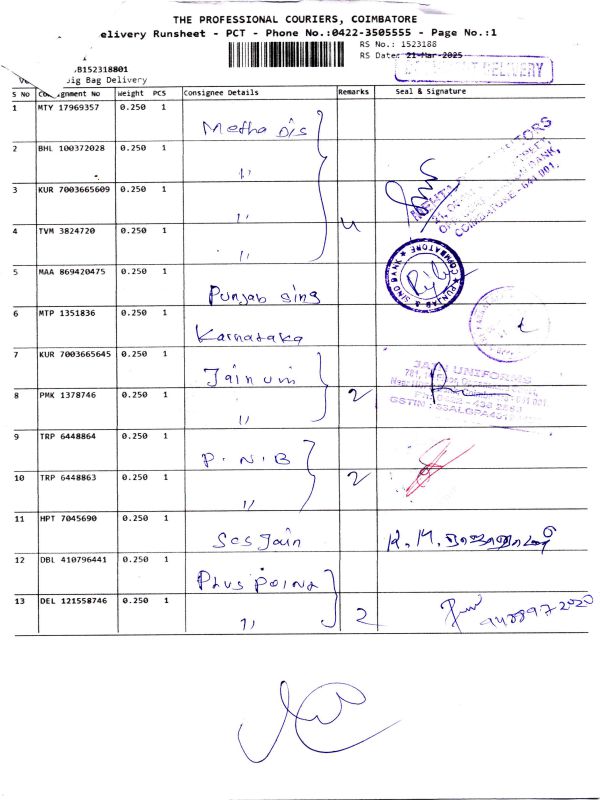 THE PROFESSIONAL COURIERS, COIMBATORE
elivery Runsheet - PCT - Phone No.:0422-3505555 - Page No.:1
RS No.: 1523188
RS Date: 21-Mar-2025
B152318801
DELIVERY
Big Bag Delivery
S No Consignment No Weight PCS Consignee Details Remarks Seal & Signature
1 MTY 17969357 0.250 1 Metha D/s
2 BHL 100372028 0.250 1 "
3 KUR 7003665609 0.250 1 "
4 TVM 3824720 0.250 1 " 4
COIMBATORE - 641 001.
5 MAA 869420475 0.250 1 Punjab sing
PUNJAB & SIND BANK ★ COIMBATORE ★
6 MTP 1351836 0.250 1 Karnataka
7 KUR 7003665645 0.250 1 Jain uni
JAIN UNIFORMS
8 PMK 1378746 0.250 1 " 2
9 TRP 6448864 0.250 1 P.N.B
10 TRP 6448863 0.250 1 " 2
11 HPT 7045690 0.250 1 Scs Jain K. M.
12 DBL 410796441 0.250 1 Plus Point
13 DEL 121558746 0.250 1 " 2